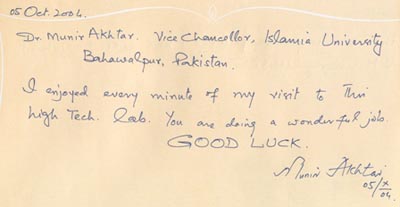 05 Oct. 2004.
Dr. Munir Akhtar. Vice Chancellor, Islamia University
Bahawalpur, Pakistan.
I enjoyed every minute of my visit to this
high Tech. lab. You are doing a wonderful job.
GOOD LUCK.
Munir Akhtar
05/X/04.